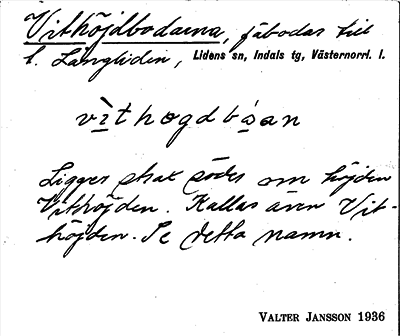 Vithöjdbodarna, fäbodar till
l. Långliden, Lidens sn, Indals tg, Västernorrl. l.
vìthøgdbùan
Ligger strax söder om höjden
Vithöjden. Kallas även Vit-
höjden. Se detta namn.
VALTER JANSSON 1936